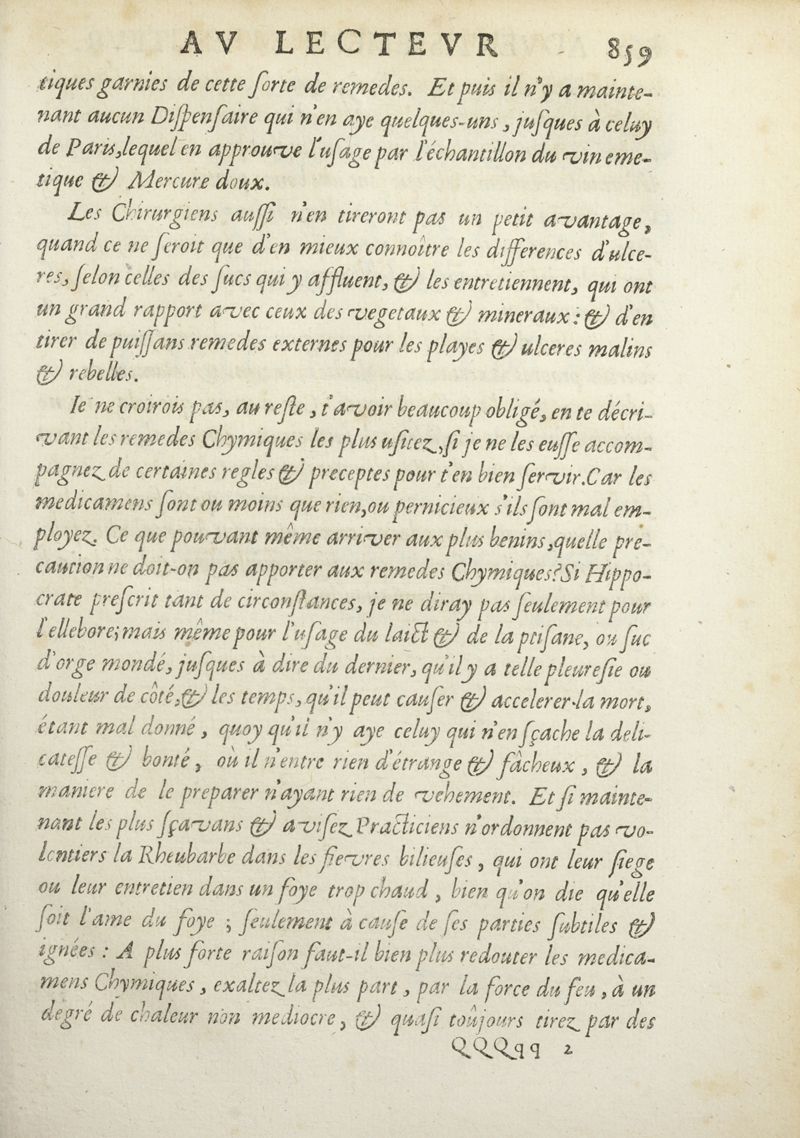 AV LECTEVR 859
tiques garnies de cette ſorte de remedes. Et puis il n'y a mainte-
nant aucun Diſpenſaire qui n'en aye quelques-uns, juſques à celuy
de Paris, lequel en approuve l'uſage par l'échantillon du vin eme-
tique & Mercure doux.
Les Chirurgiens auſſi n'en tireront pas un petit avantage,
quand ce ne ſeroit que d'en mieux connoître les differences d'ulce-
res, ſelon celles des ſucs qui y affluent, & les entretiennent, qui ont
un grand rapport avec ceux des vegetaux & mineraux : & d'en
tirer de puiſſans remedes externes pour les playes & ulceres malins
& rebelles.
Ie ne croirois pas, au reſte, t'avoir beaucoup obligé, en te décri-
vant les remedes Chymiques les plus uſitez, ſi je ne les euſſe accom-
pagnez de certaines regles & preceptes pour t'en bien ſervir. Car les
medicamens ſont ou moins que rien, ou pernicieux s'ils ſont mal em-
ployez. Ce que pouvant même arriver aux plus benins, quelle pre-
caution ne doit-on pas apporter aux remedes Chymiques? Si Hippo-
crate preſcrit tant de circonſtances, je ne diray pas ſeulement pour
l'ellebore; mais même pour l'uſage du laict & de la ptiſane, ou ſuc
d'orge mondé, juſques à dire du dernier, qu'il y a telle pleureſie ou
douleur de côté, & les temps, qu'il peut cauſer & accelerer la mort,
étant mal donné, quoy qu'il n'y aye celuy qui n'en ſçache la deli-
cateſſe & bonté, où il n'entre rien d'étrange & fâcheux, & la
maniere de le preparer n'ayant rien de vehement. Et ſi mainte-
nant les plus ſçavans & aviſez Practiciens n'ordonnent pas vo-
lentiers la Rheubarbe dans les fievres bilieuſes, qui ont leur ſiege
ou leur entretien dans un foye trop chaud, bien qu'on die qu'elle
ſoit l'ame du foye ; ſeulement à cauſe de ſes parties ſubtiles &
ignées : A plus forte raiſon faut-il bien plus redouter les medica-
mens Chymiques, exaltez la plus part, par la force du feu, à un
degré de chaleur non mediocre, & quaſi toûjours tirez par des
QQQqq 2